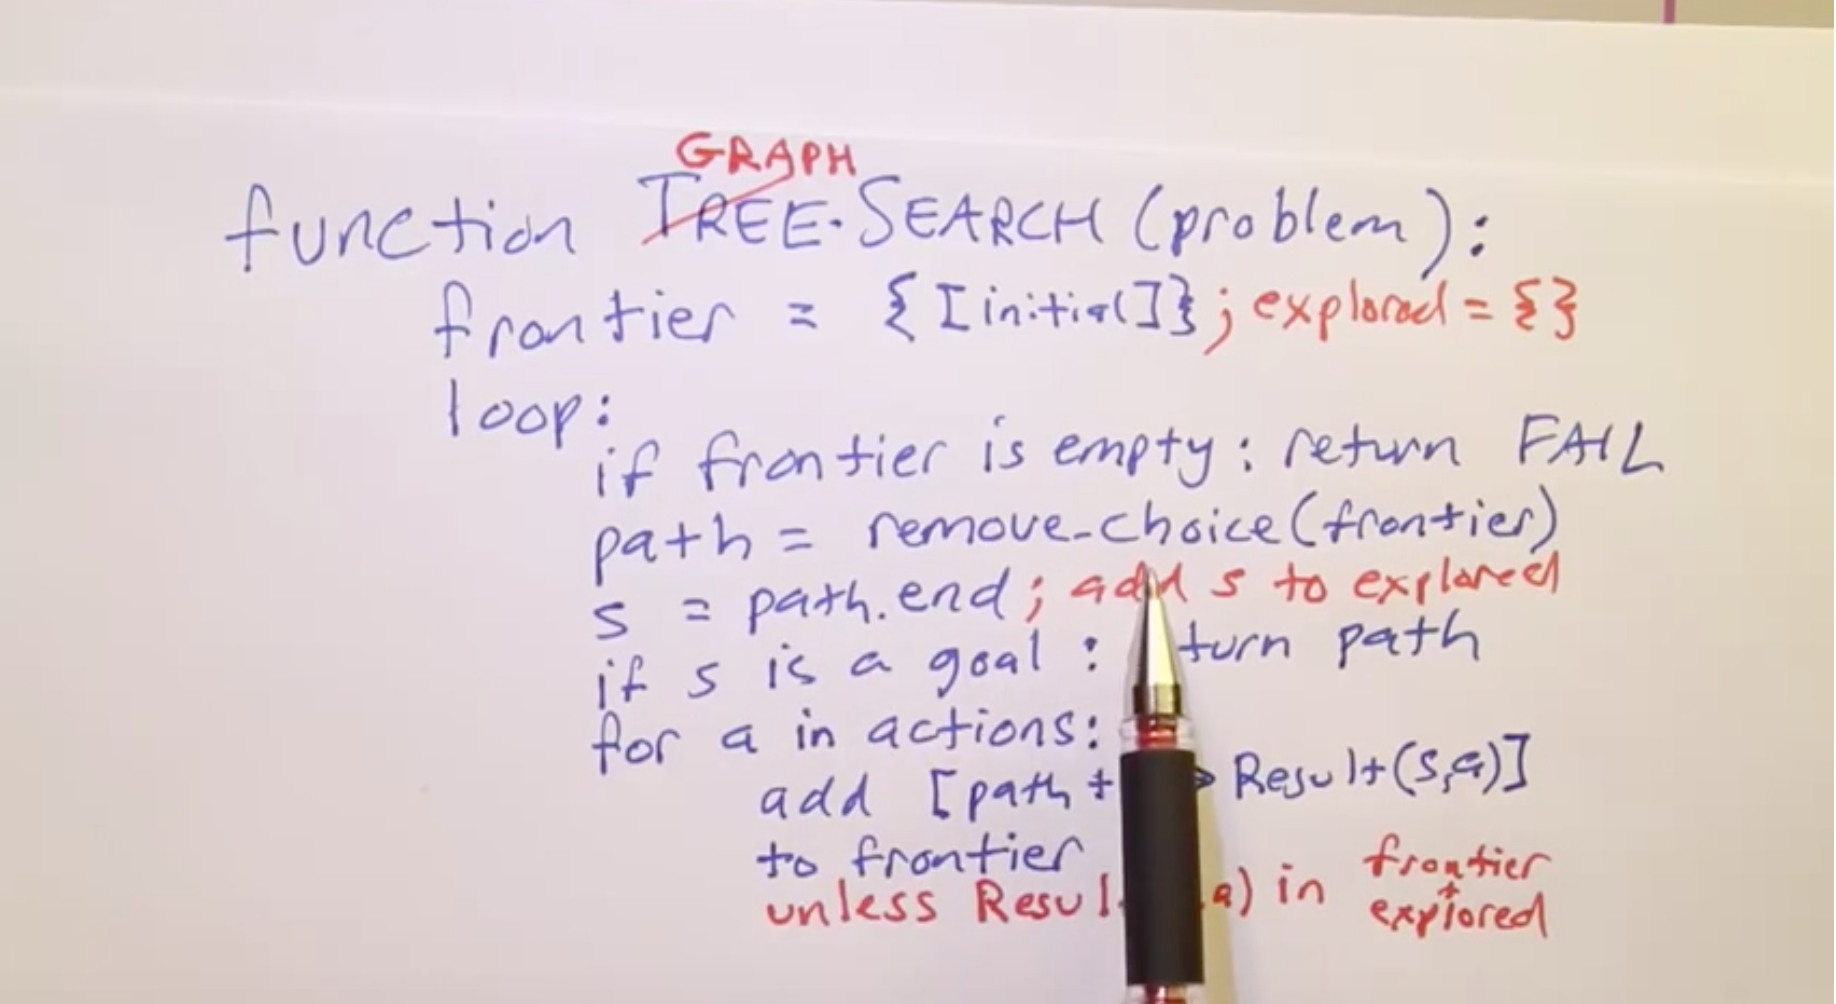 GRAPH
function TREE-SEARCH (problem):
frontier = {[initial]}; explored = {}
loop:
if frontier is empty: return FAIL
path = remove-choice(frontier)
s = path.end; add s to explored
if s is a goal: turn path
for a in actions:
add [path + → Result(s,a)]
to frontier
unless Resul a) in frontier + explored